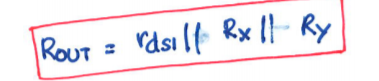 ROUT = rds1 || Rx || Ry